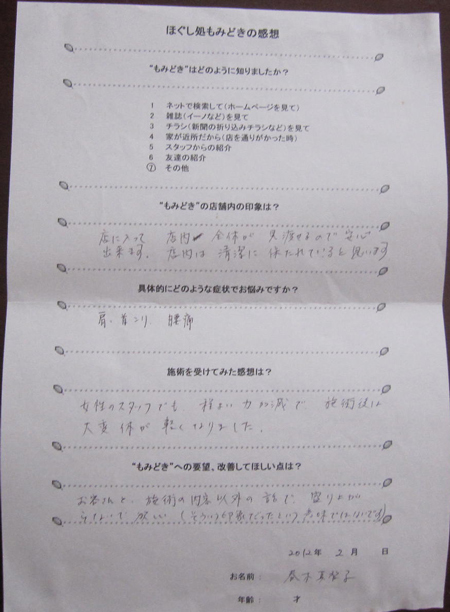 ほぐし処もみどきの感想
"もみどき"はどのように知りましたか？
1 ネットで検索して(ホームページを見て)
2 雑誌(イーノなど)を見て
3 チラシ(新聞の折り込みチラシなど)を見て
4 家が近所だから(店を通りがかった時)
5 スタッフからの紹介
6 友達の紹介
⑦ その他
"もみどき"の店舗内の印象は？
店に入って 店内 全体が 見渡せるので安心
出来ます。 店内は 清潔に 保たれていると思います
具体的にどのような症状でお悩みですか？
肩、首こり、腰痛
施術を受けてみた感想は？
女性のスタッフでも 程よい力加減で 施術後は
大変 体が 軽くなりました。
"もみどき"への要望、改善してほしい点は？
お客さんと、施術の内容以外の話で 盛り上が
らないで 欲しい (そういう印象だったという意味ではないです)
2012年 2月 日
お名前：
年齢： 才